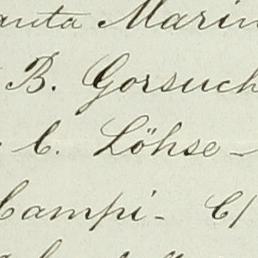 Marin
B. Gorsuch
C. Löhse -
Campi - C/